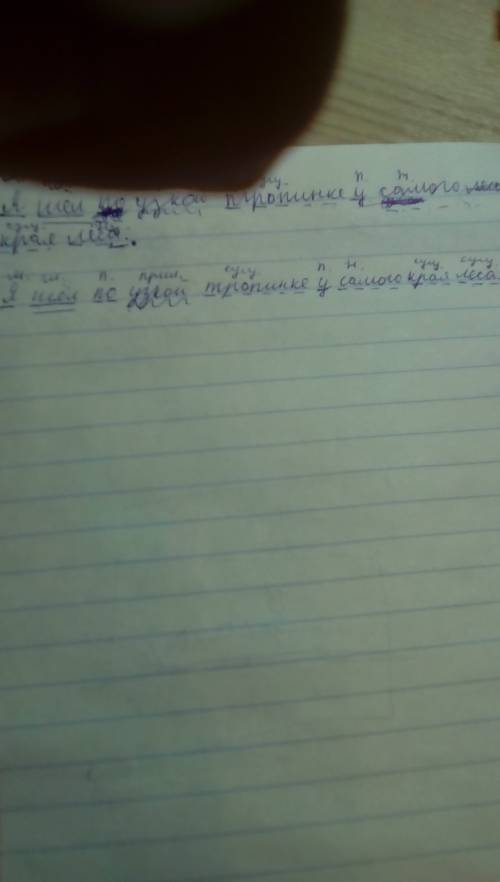 сущ. п. н.
Я шел по узкой тропинке у самого
края леса.
м. гл. п. прил. сущ. п н. сущ сущ.
Я шел по узкой тропинке у самого края леса